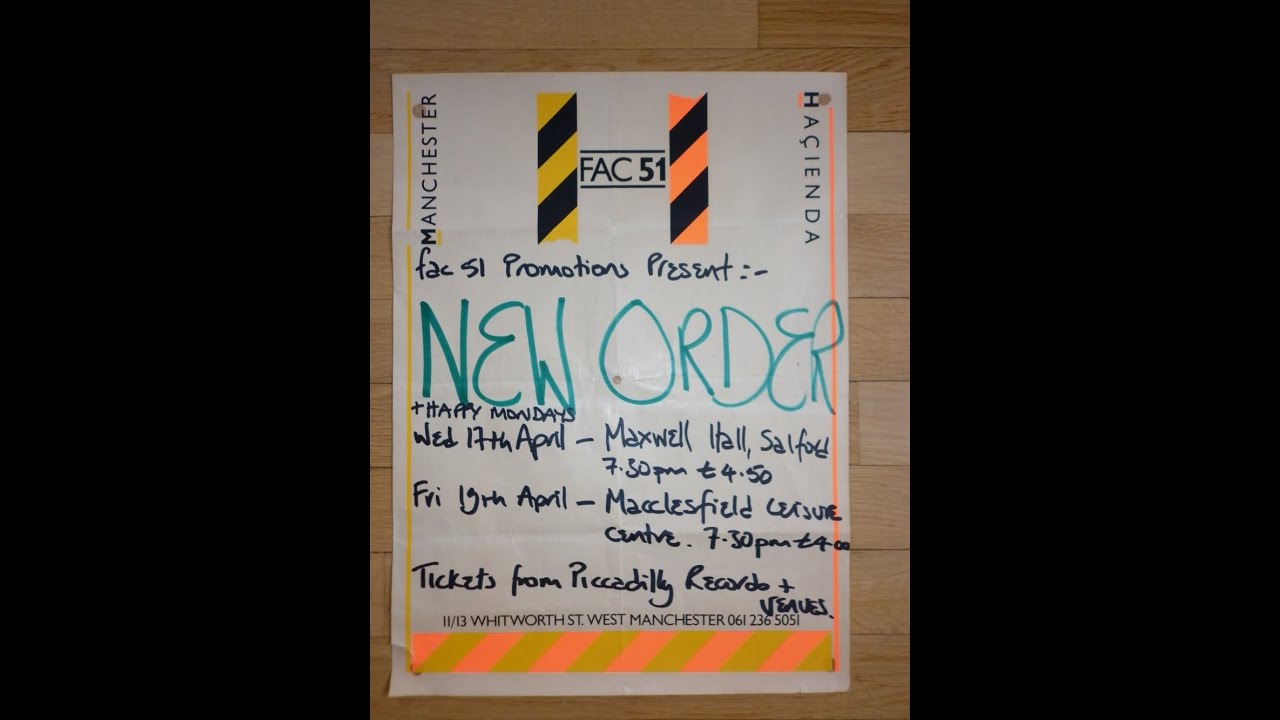 MANCHESTER
HAÇIENDA
FAC 51
fac 51 Promotions Present :-
NEW ORDER
+ HAPPY MONDAYS
Wed 17th April - Maxwell Hall, Salford
7.30pm £4.50
Fri 19th April - Macclesfield Leisure
Centre. 7.30pm £4.00
Tickets from Piccadilly Records +
VENUES.
11/13 WHITWORTH ST. WEST MANCHESTER 061 236 5051